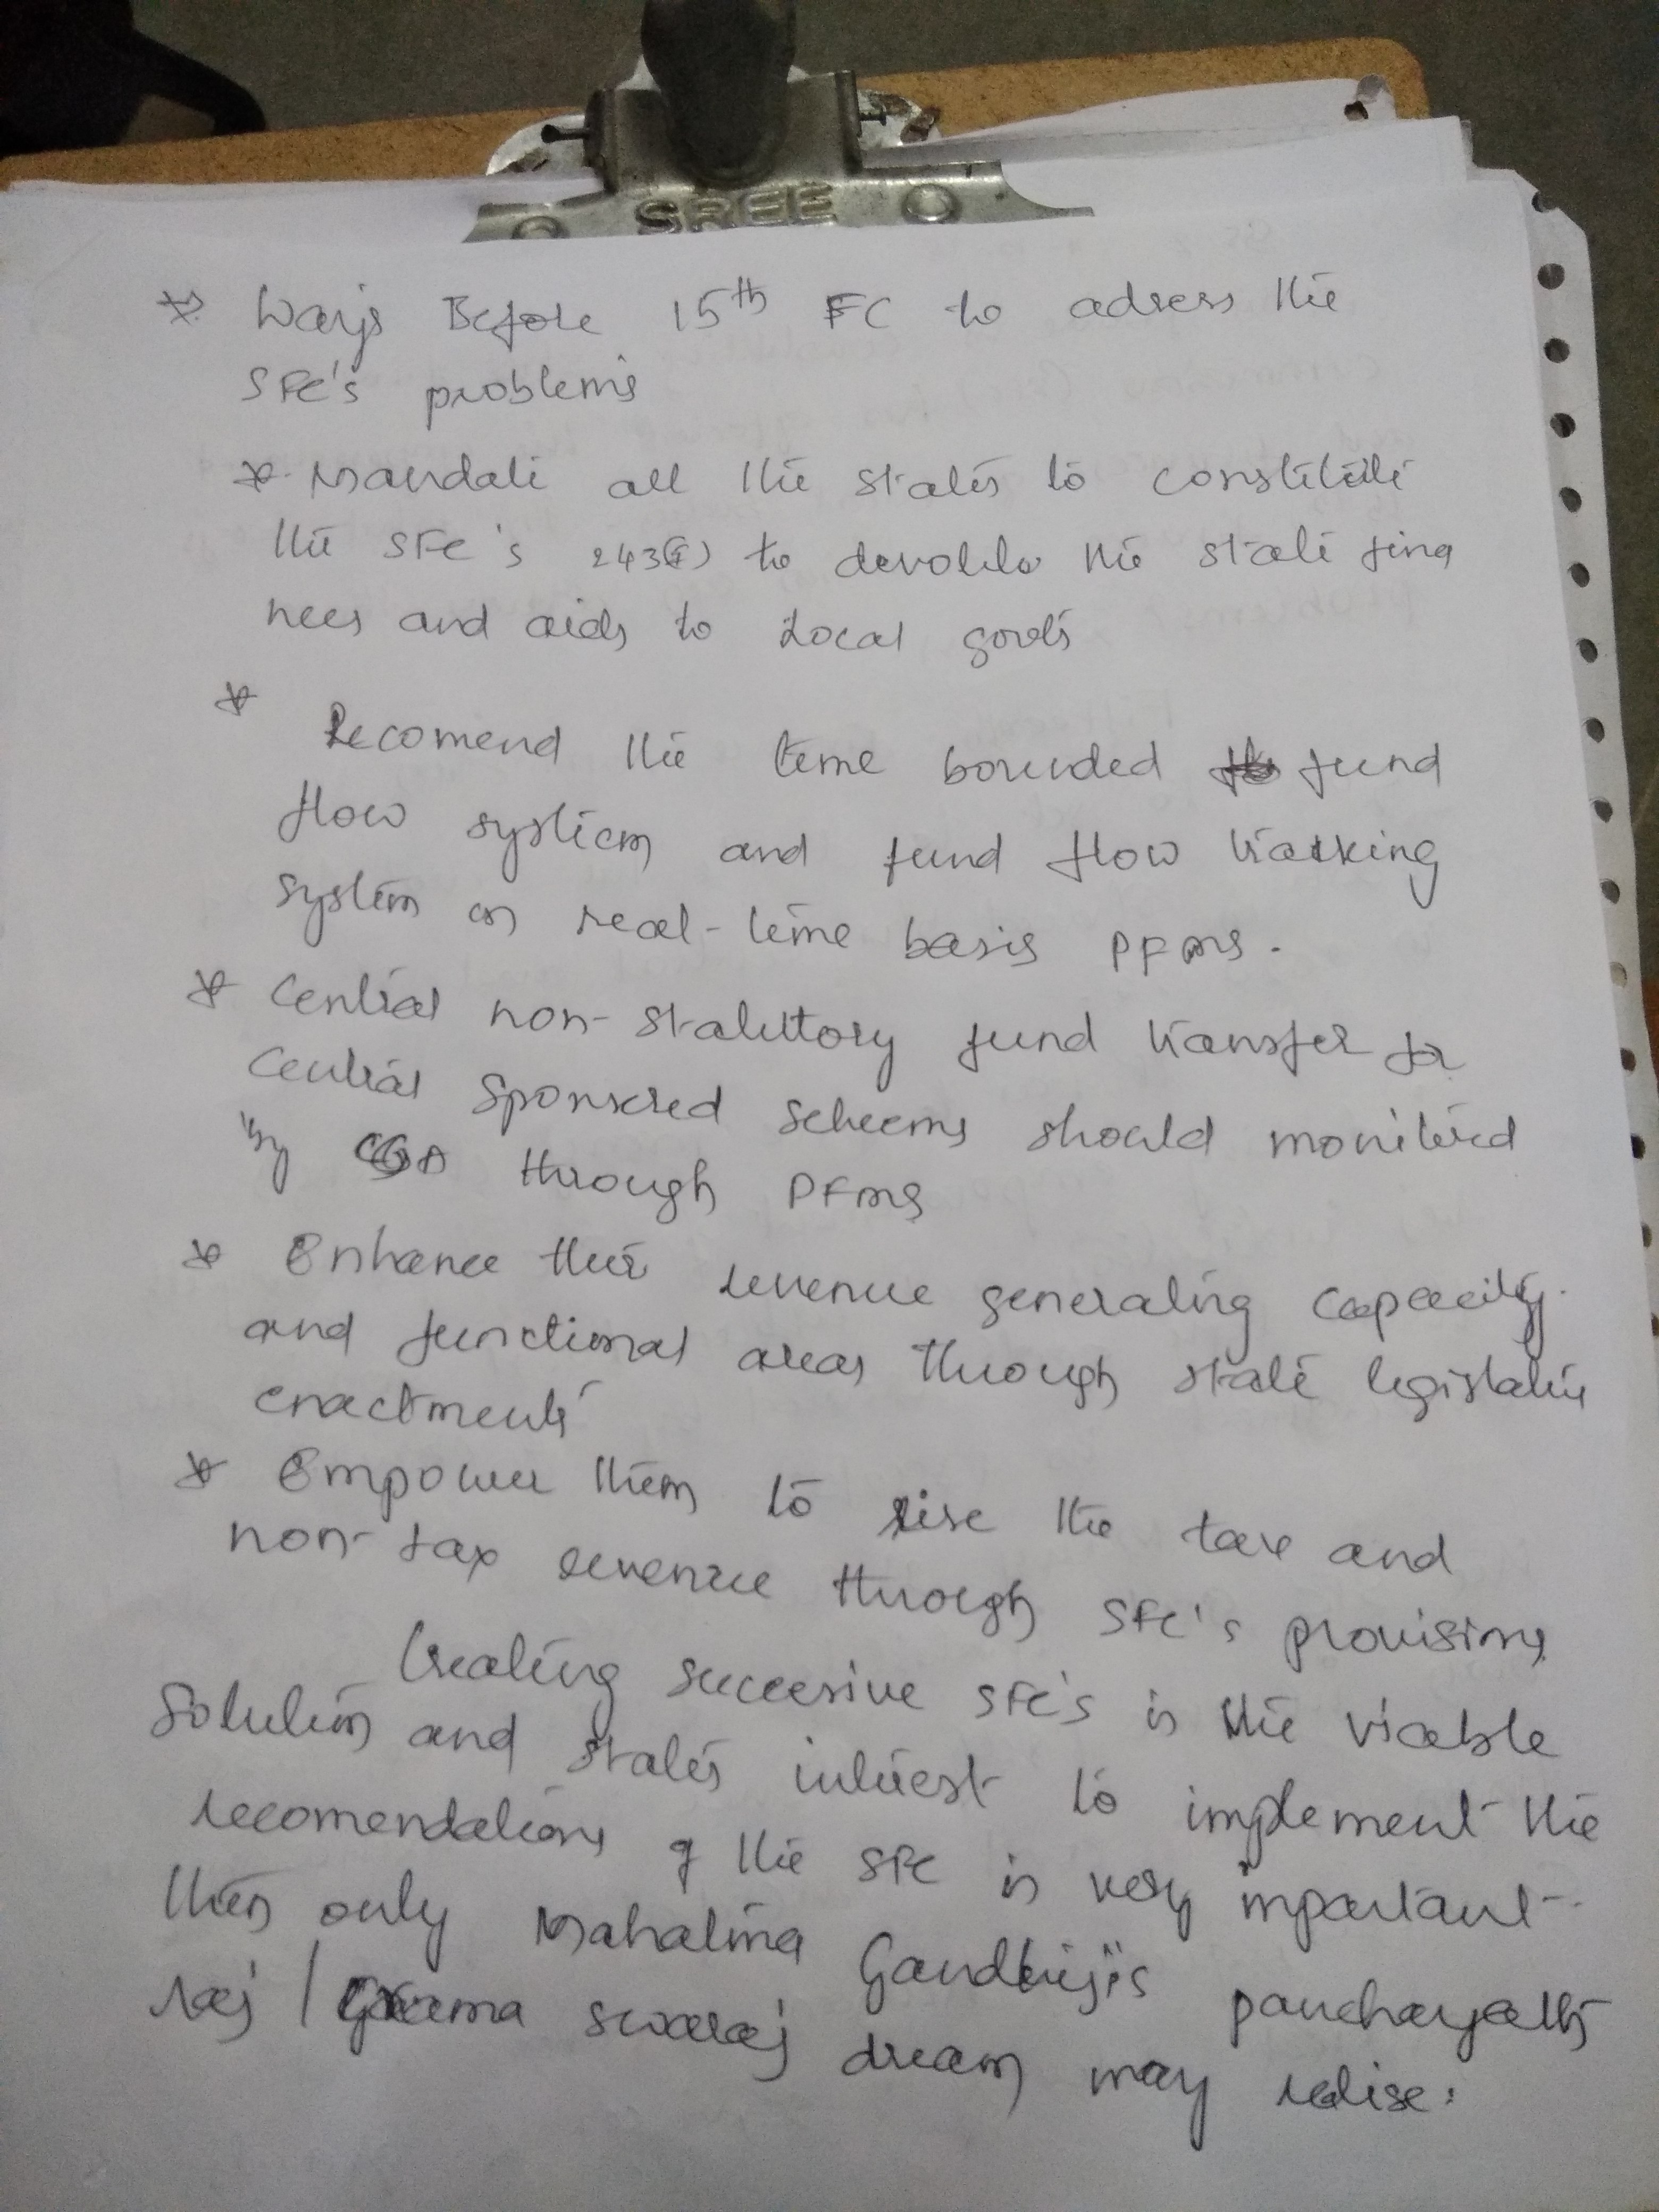 SREE
* Ways Before 15th FC to adress the
SFC's problems
* Mandate all the states to constitute
the SFC's 243(I) to devolve the state fina
nces and aids to Local govts
* Recomend the time bounded fund
flow system and fund flow tracking
system on real-time basis PFMS.
* Central non-statutory fund transfer for
central sponsered scheems should monitered
by CGA through PFMS
* Enhance their revenue generating capacity.
and functional areas through state legislative
enactments
* Empower them to rise the tax and
non-tax revenue through SFC's provisions
Creating succesive SFC's is the viable
Solution and states intrest to implement the
recomendations of the SFC is very important
then only Mahatma Gandhiji's panchayath
raj / Grama swaraj dream may relise.